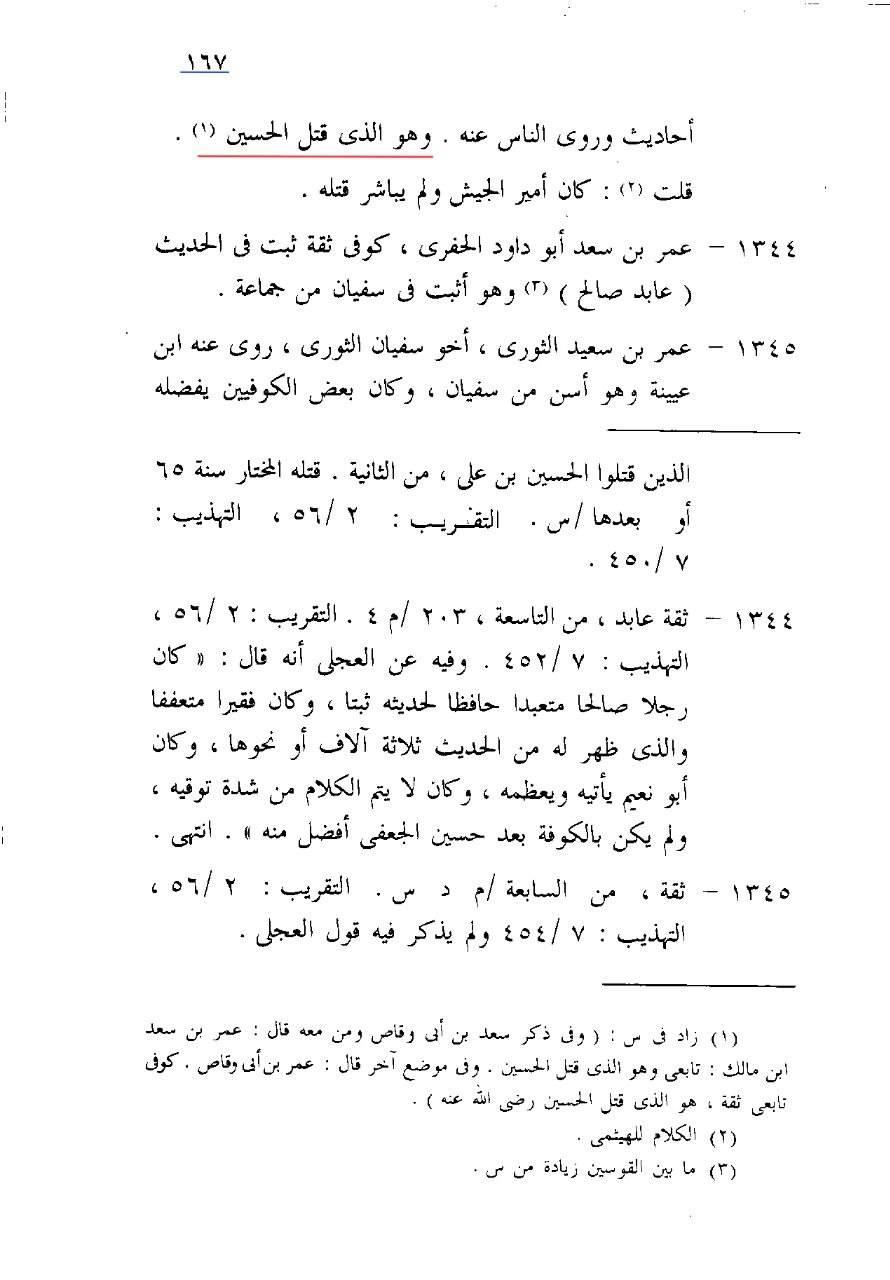 ١٦٧
أحاديث وروى الناس عنه . وهو الذى قتل الحسين (١) .
قلت (٢) : كان أمير الجيش ولم يباشر قتله .
١٣٤٤ – عمر بن سعد أبو داود الحفرى ، كوفى ثقة ثبت فى الحديث
( عابد صالح ) (٣) وهو أثبت فى سفيان من جماعة .
١٣٤٥ – عمر بن سعيد الثورى ، أخو سفيان الثورى ، روى عنه ابن
عيينة وهو أسن من سفيان ، وكان بعض الكوفيين يفضله
الذين قتلوا الحسين بن على ، من الثانية . قتله المختار سنة ٦٥
أو بعدها /س . التقريب : ٢ /٥٦ ، التهذيب :
٧ /٤٥٠ .
١٣٤٤ – ثقة عابد ، من التاسعة ، ٢٠٣ /م ٤ . التقريب : ٢ /٥٦ ،
التهذيب : ٧ /٤٥٢ . وفيه عن العجلى أنه قال : « كان
رجلا صالحا متعبدا حافظا لحديثه ثبتا ، وكان فقيرا متعففا
والذى ظهر له من الحديث ثلاثة آلاف أو نحوها ، وكان
أبو نعيم يأتيه ويعظمه ، وكان لا يتم الكلام من شدة توقيه ،
ولم يكن بالكوفة بعد حسين الجعفى أفضل منه » . انتهى .
١٣٤٥ – ثقة ، من السابعة /م د س . التقريب : ٢ /٥٦ ،
التهذيب : ٧ /٤٥٤ ولم يذكر فيه قول العجلى .
(١) زاد فى س : ( وفى ذكر سعد بن أبى وقاص ومن معه قال : عمر بن سعد
ابن مالك : تابعى وهو الذى قتل الحسين . وفى موضع آخر قال : عمر بن أبى وقاص . كوفى
تابعى ثقة ، هو الذى قتل الحسين رضى الله عنه ) .
(٢) الكلام للهيثمى .
(٣) ما بين القوسين زيادة من س .